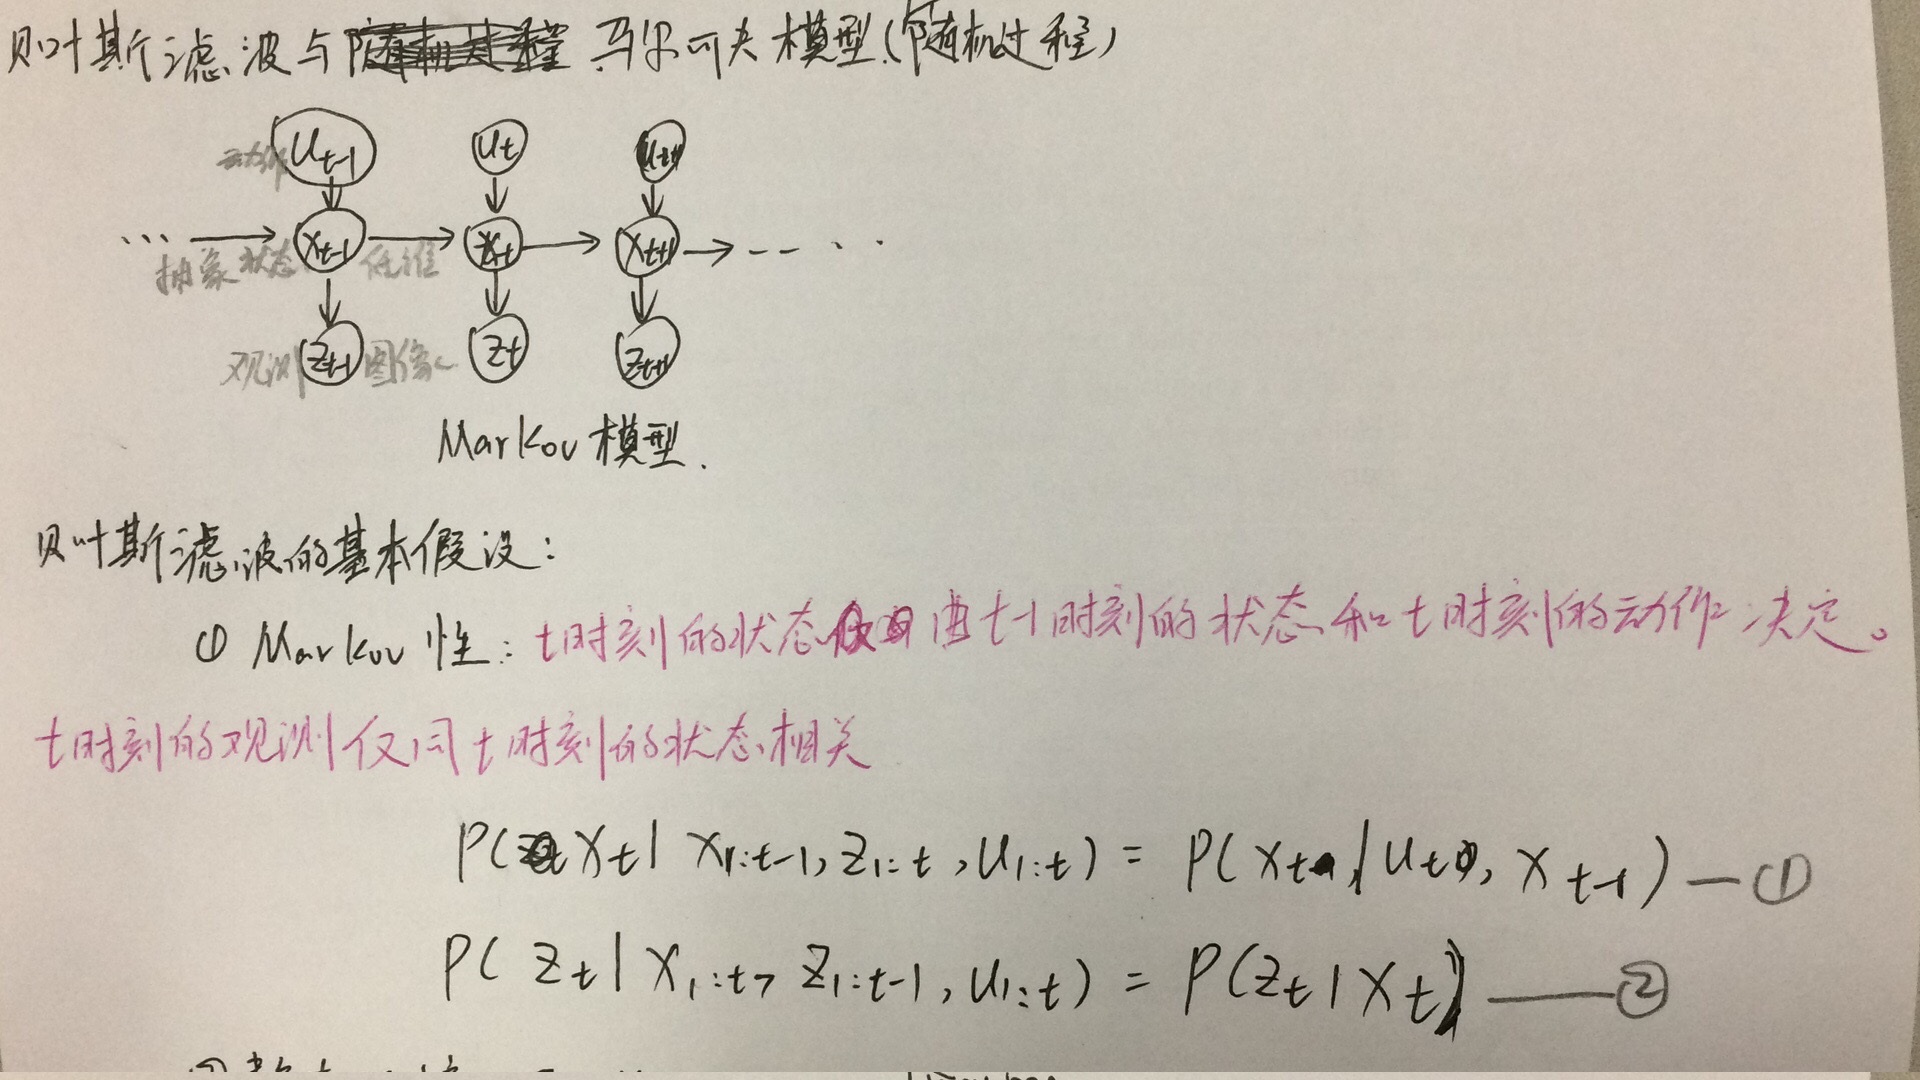 贝叶斯滤波与 马尔可夫模型(随机过程)
动作 Ut-1 Ut Ut+1
... Xt-1 Xt Xt+1 -- ..
抽象状态 低维
观测 Zt-1 图像 Zt Zt+1
Markov 模型.
贝叶斯滤波的基本假设:
① Markov 性: t时刻的状态由t-1时刻的状态和t时刻的动作决定。
t时刻的观测仅同t时刻的状态相关
P(Xt| X1:t-1, Z1:t, U1:t) = P(Xt | Ut, Xt-1) —①
P(Zt| X1:t, Z1:t-1, U1:t) = P(Zt | Xt) ——②